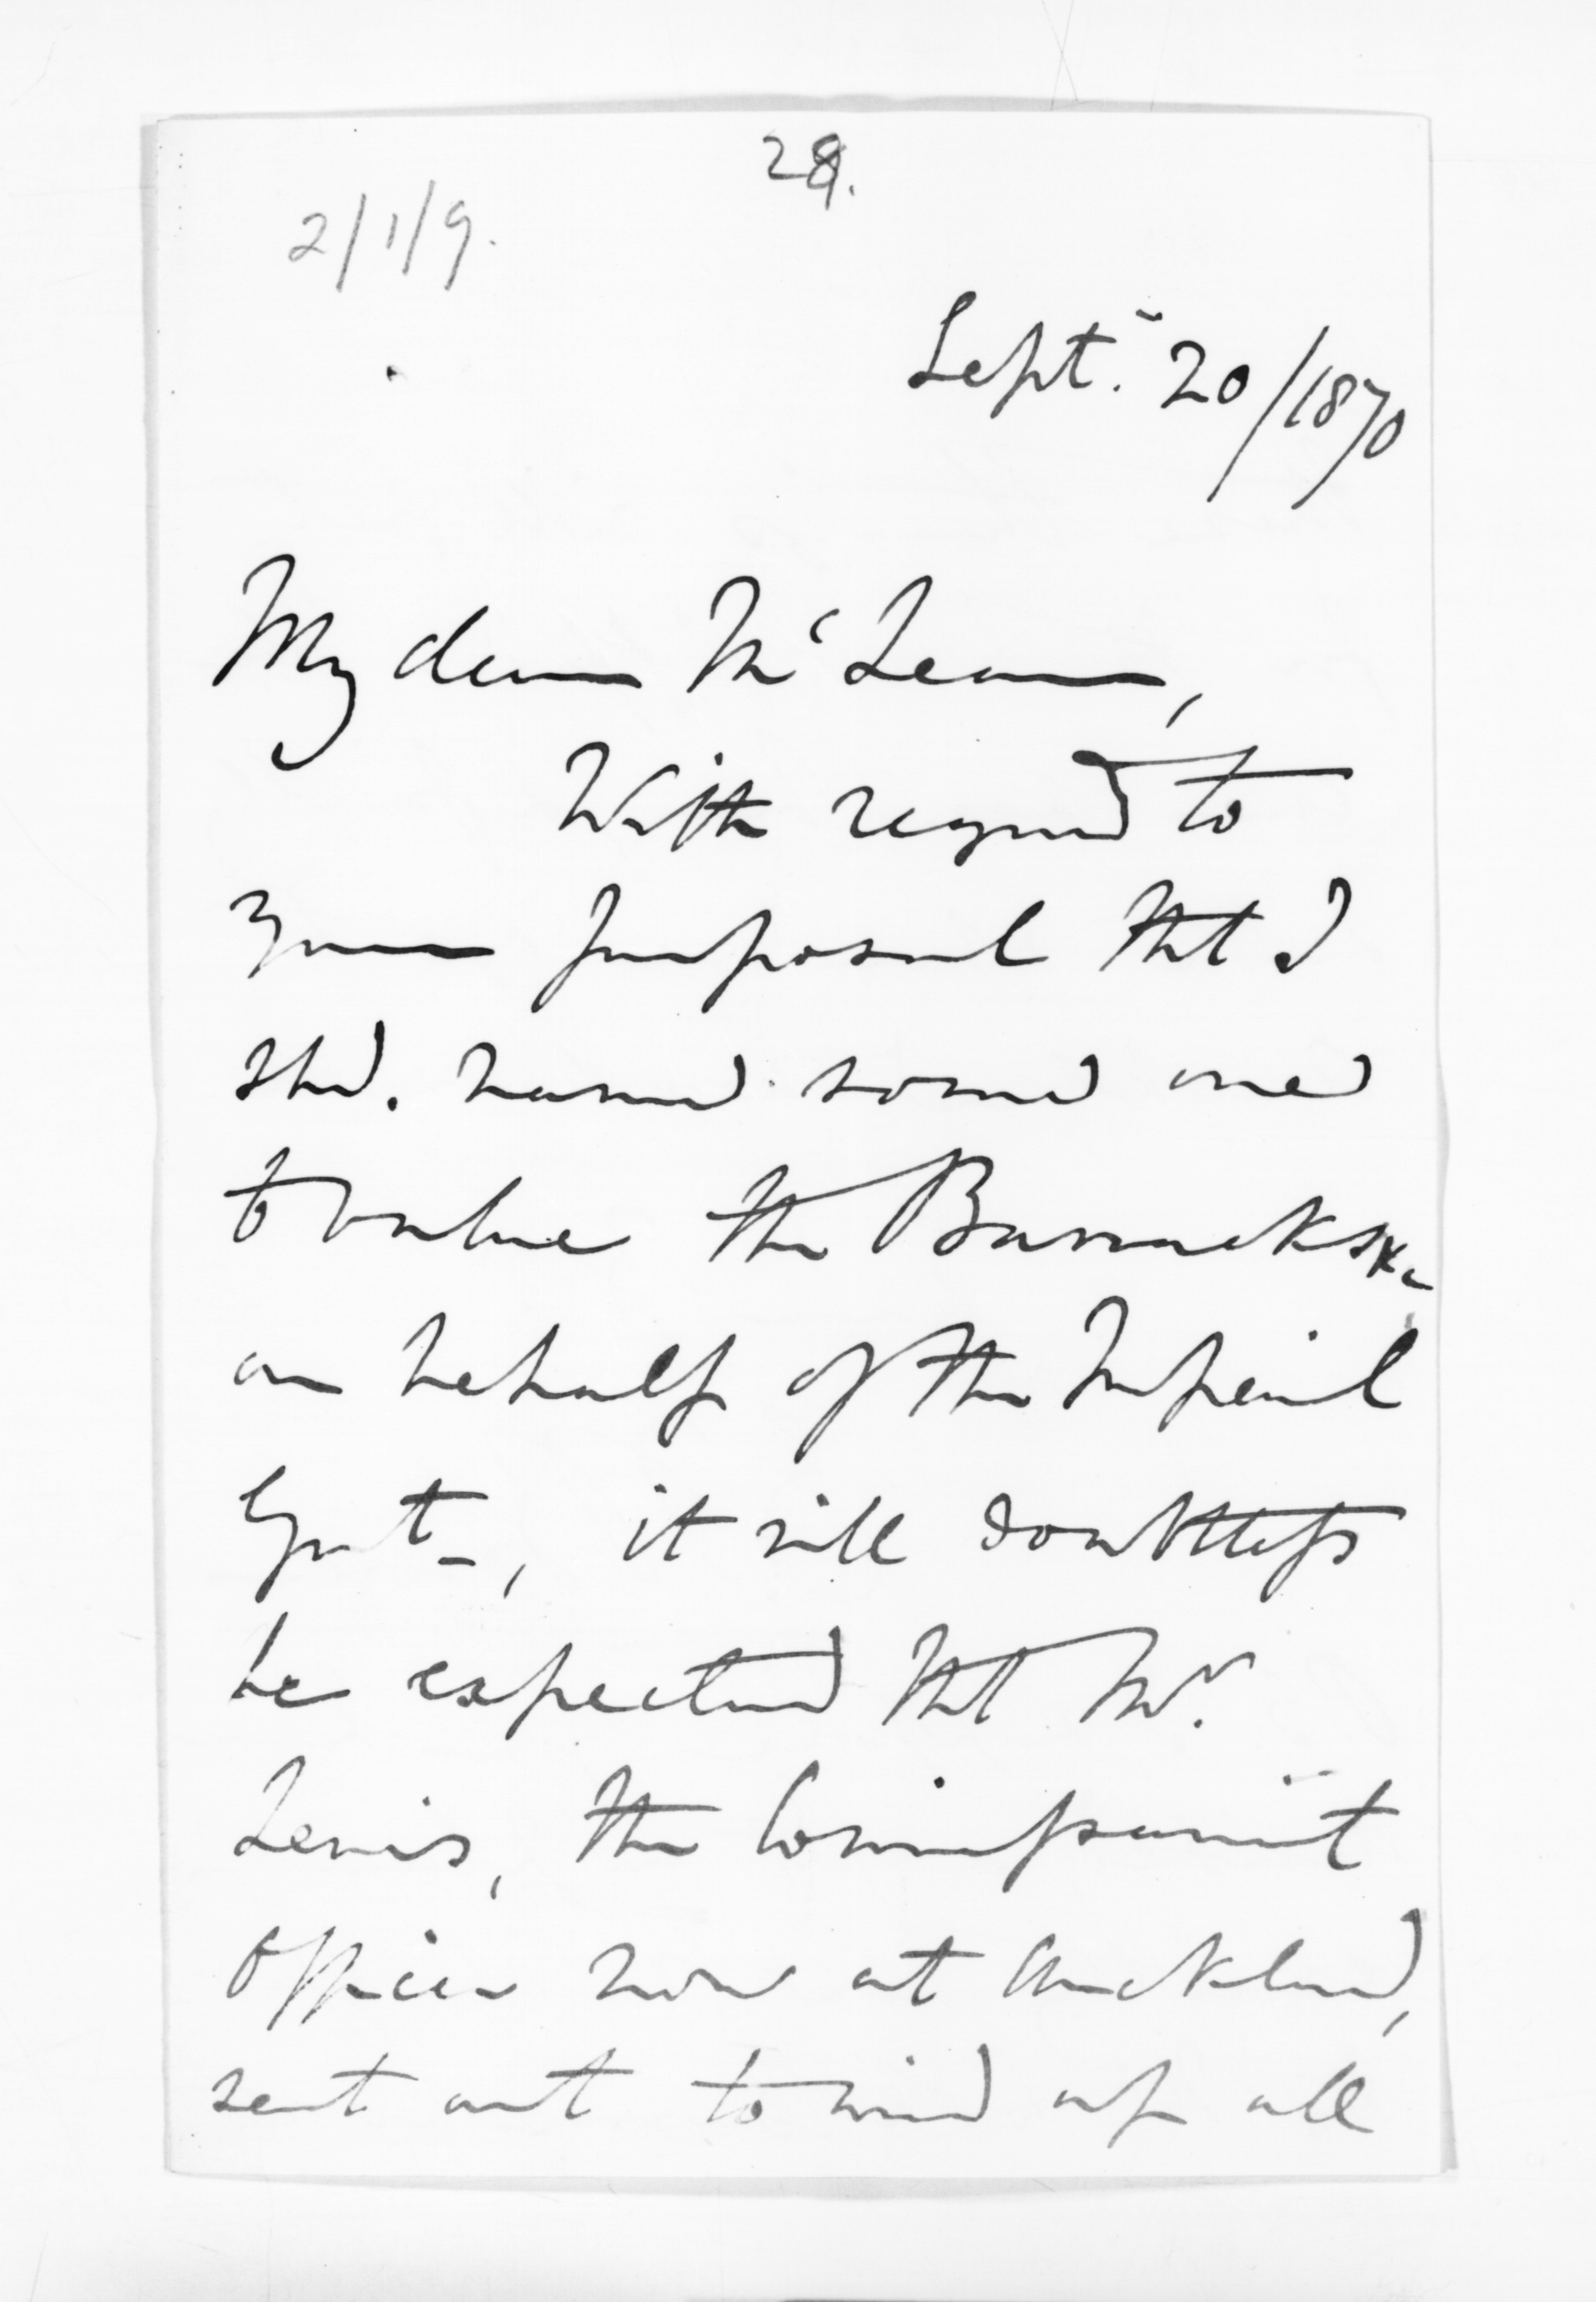 28.
2/1/9.
Sept. 20/1870
My dear McLean,
With regard to
your proposal tht I
shd. name some one
to value the Barracks &c
on behalf of the Imperial
Govt-, it will doubtless
be expected tht Mr.
Lewis, the Commissariat
Officer now at Auckland,
sent out to wind up all